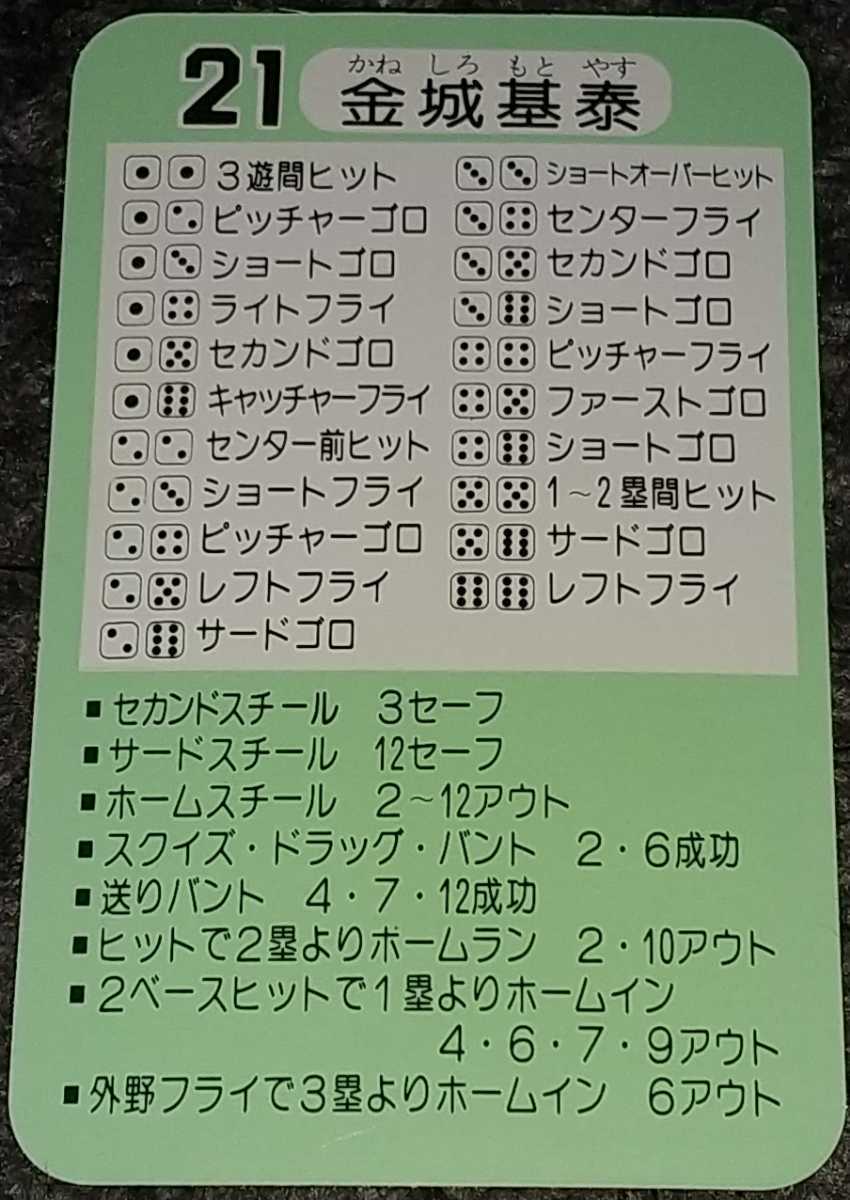 21
かね しろ もと やす
金城基泰
3遊間ヒット
ピッチャーゴロ
ショートゴロ
ライトフライ
セカンドゴロ
キャッチャーフライ
センター前ヒット
ショートフライ
ピッチャーゴロ
レフトフライ
サードゴロ
ショートオーバーヒット
センターフライ
セカンドゴロ
ショートゴロ
ピッチャーフライ
ファーストゴロ
ショートゴロ
1～2塁間ヒット
サードゴロ
レフトフライ
■セカンドスチール 3セーフ
■サードスチール 12セーフ
■ホームスチール 2～12アウト
■スクイズ・ドラッグ・バント 2・6成功
■送りバント 4・7・12成功
■ヒットで2塁よりホームラン 2・10アウト
■2ベースヒットで1塁よりホームイン
4・6・7・9アウト
■外野フライで3塁よりホームイン 6アウト